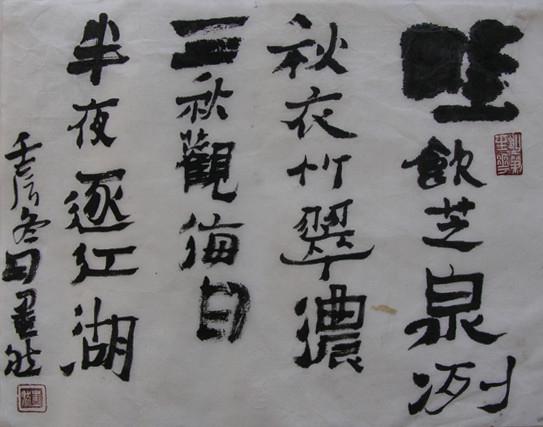 飲芝泉冽
秋衣竹翠濃
三秋觀海日
半夜逐江湖
壬辰冬月墨